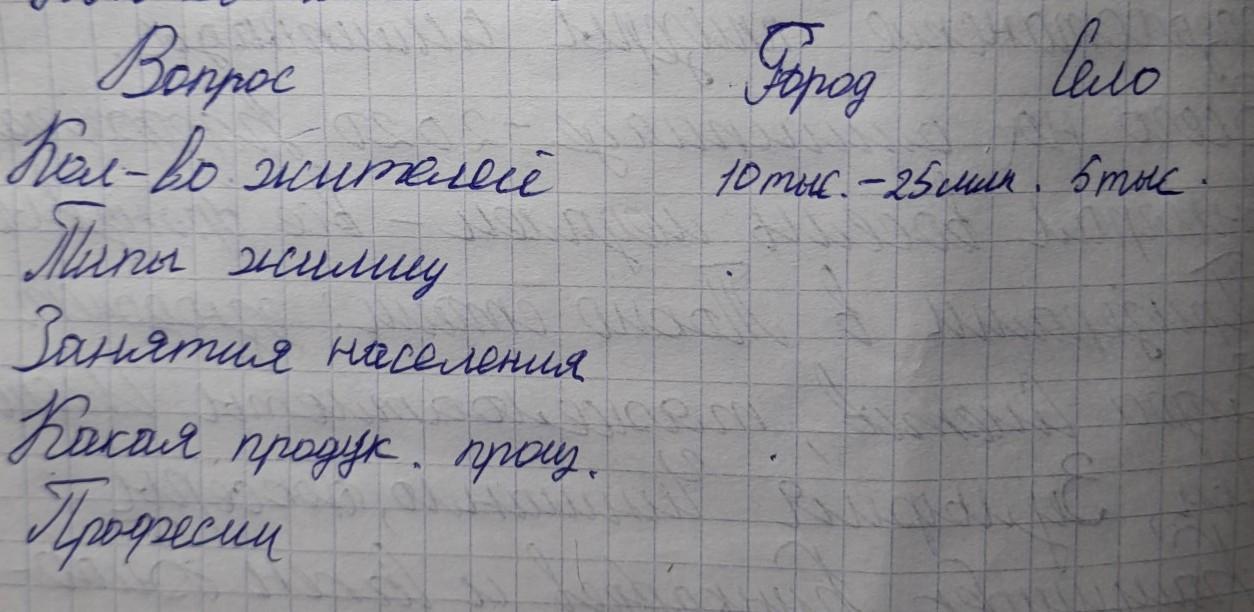 Вопрос Город Село
Кол-во жителей 10 тыс. - 25 млн. 5 тыс.
Типы жилищ
Занятия населения
Какая продук. произ.
Професии